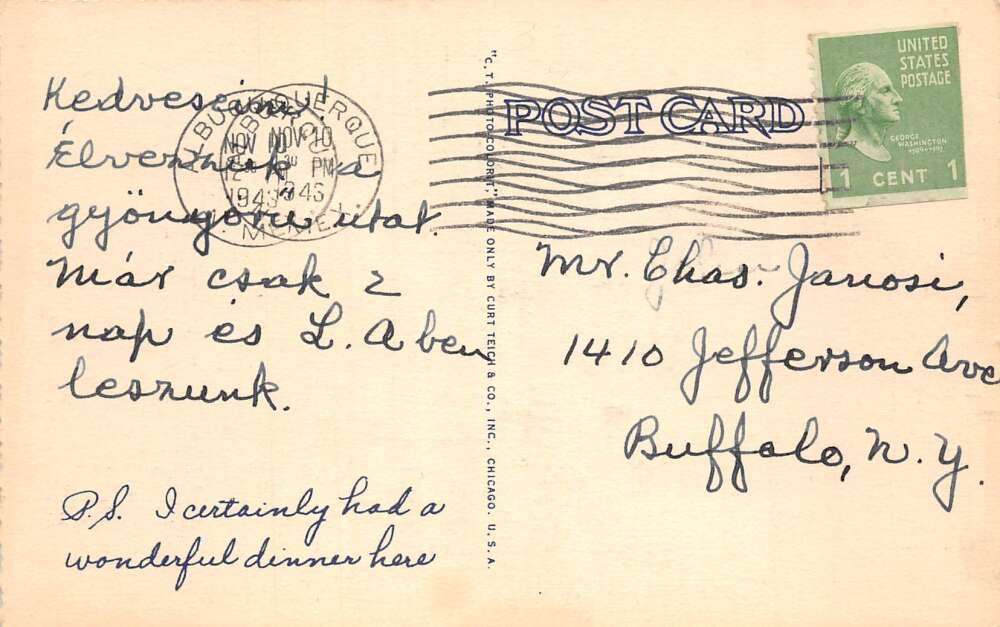 Kedveseim!
Élvezzük a
gyönyörű utat.
Már csak 2
nap és L. A ben
leszunk.
P.S. I certainly had a
wonderful dinner here
"C.T. PHOTO-COLORIT" MADE ONLY BY CURT TEICH & CO., INC., CHICAGO. U.S.A.
ALBUQUERQUE
NOV 10
NOV 10
PM
1943
N. MEX.
POST CARD
UNITED
STATES
POSTAGE
GEORGE
WASHINGTON
1789-1797
1 CENT 1
Mr. Chas. Janosi,
1410 Jefferson Ave
Buffalo, N. Y.